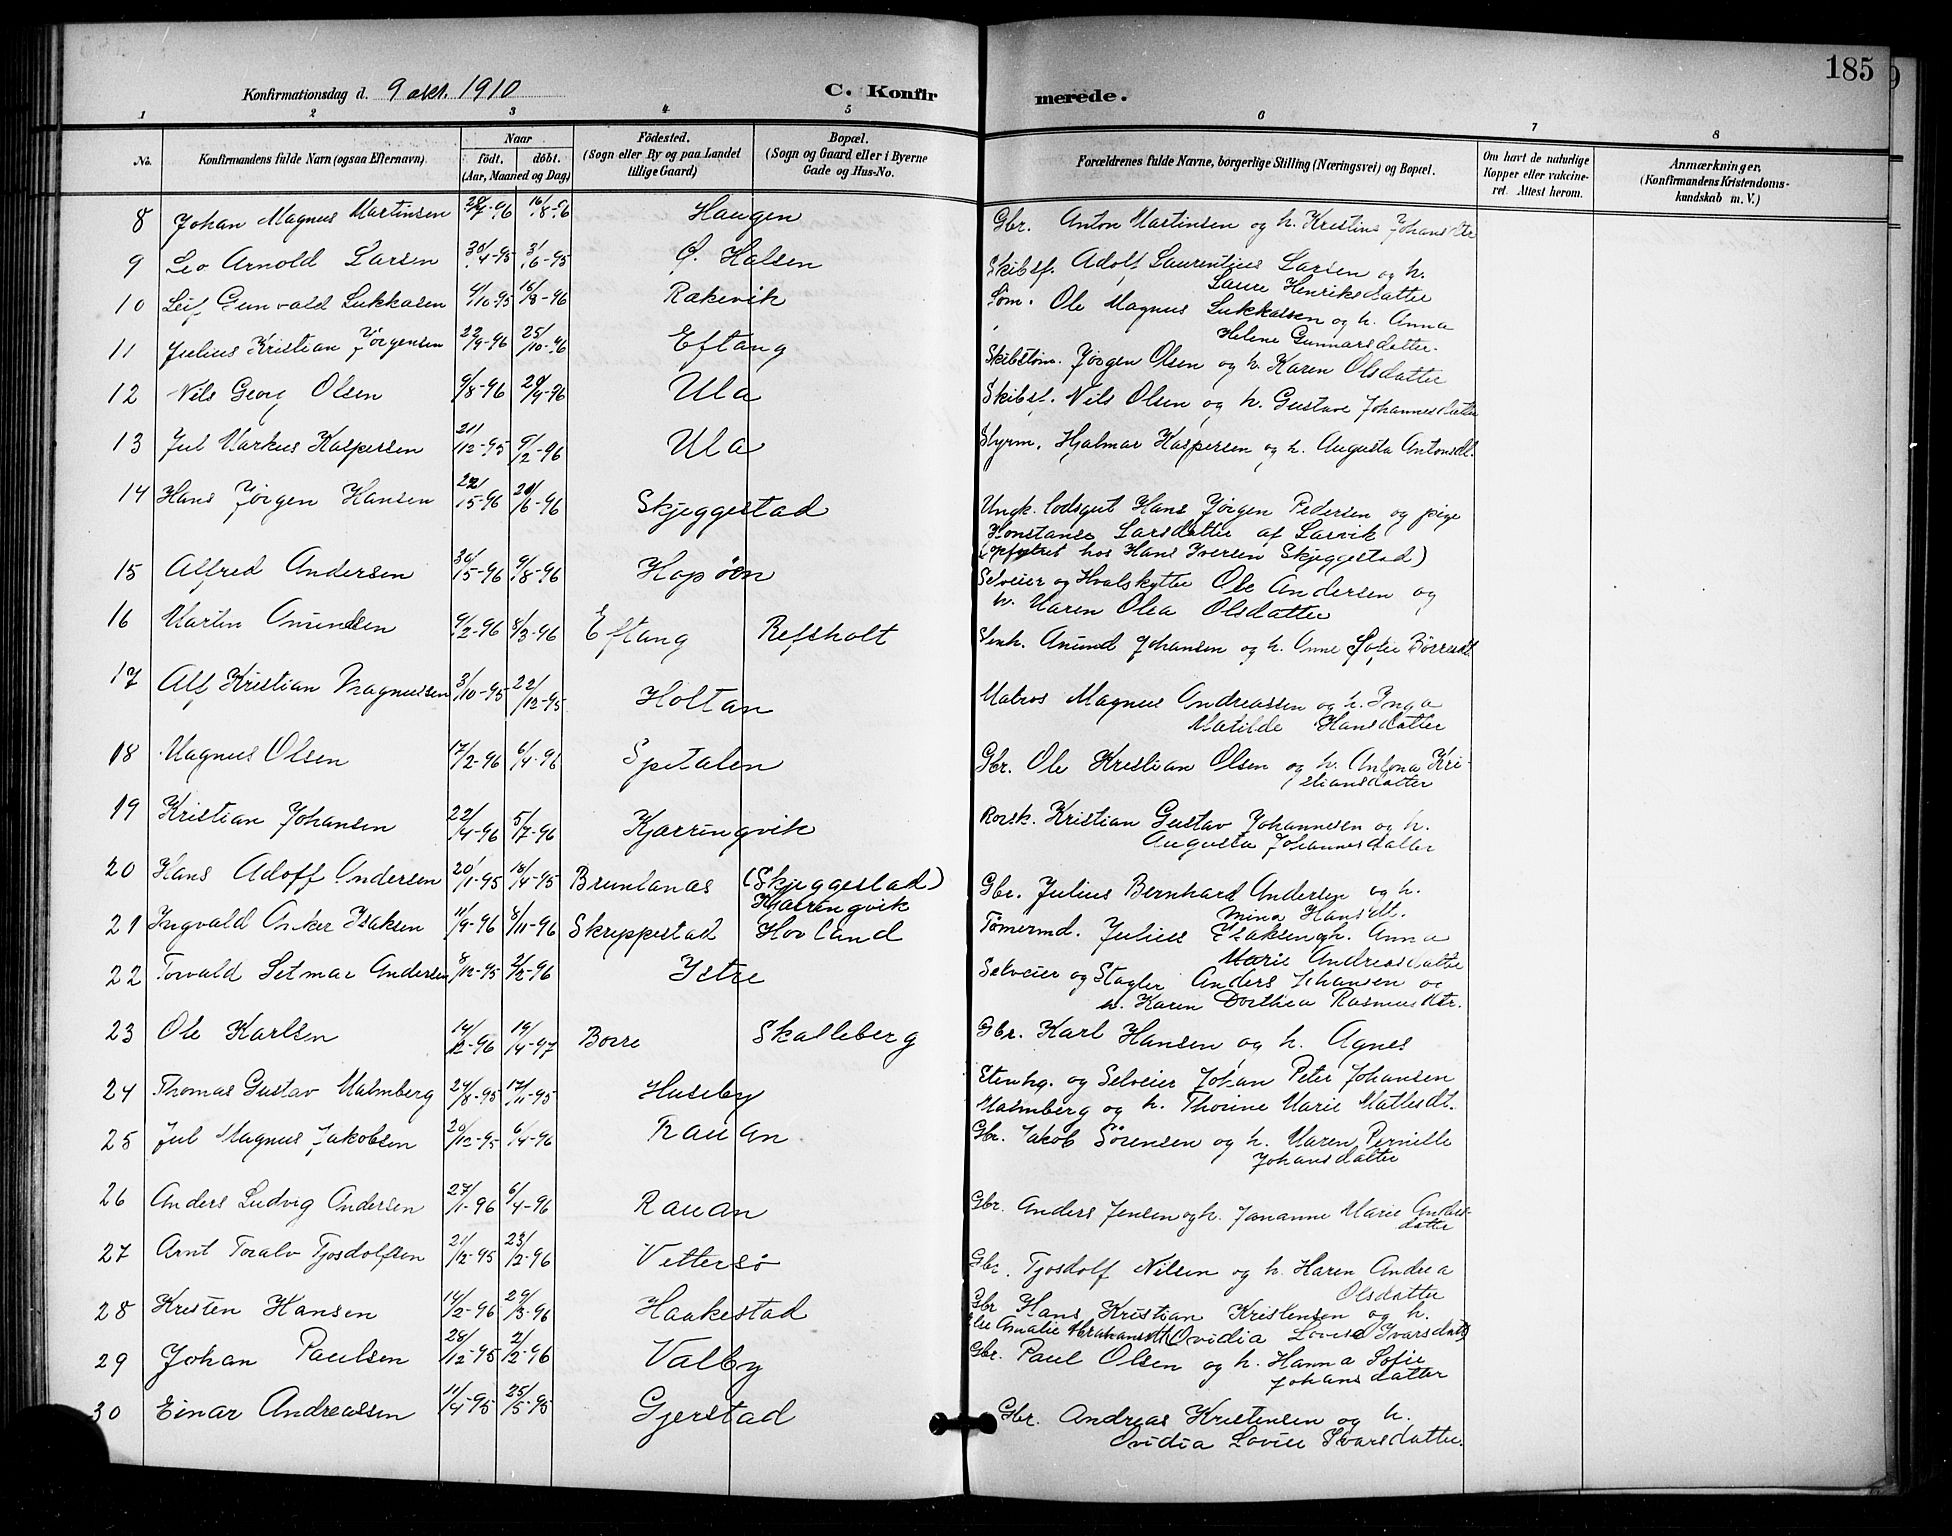 185
Konfirmationsdag d. 9 okt. 1910 C. Konfirmerede.
1 2 3 4 5 6 7 8
No. Konfirmandens fulde Navn (ogsaa Efternavn). Naar født, døbt. (Aar, Maaned og Dag) Fødested. (Sogn eller By og paa Landet tillige Gaard) Bopæl. (Sogn og Gaard eller i Byerne Gade og Hus-No. Forældrenes fulde Navne, borgerlige Stilling (Næringsvei) og Bopæl. Om havt de naturlige Kopper eller vakcineret. Attest herom. Anmærkninger. (Konfirmandens Kristendomskundskab m. V.)
8 Johan Magnus Martinsen 16/8-96 Haugen Gbr. Anton Martinsen og h. Kristine Johansdtr
9 Leo Arnold Larsen 30/4-95 3/6-95 Ø. Halsen Skibsf. Adolf Laurentius Larsen og h.
Laura Henriksdatter
10 Leif Gunvald Lukkasen 9/10-95 16/3-96 Rakevik Søm. Ole Magnus Lukkassen og h. Anna
Helene Gunnarsdatter.
11 Julius Kristian Jørgensen 22/9-96 25/10-96 Eftang Skibstøm. Jørgen Olsen og h. Karen Olsdatter
12 Nils Georg Olsen 9/8-96 20/9-96 Ula Skibsf. Nils Olsen og h. Gustava Johannesdatter
13 Jul Markus Kaspersen 21/12-95 9/2-96 Ula Styrm. Hjalmar Kaspersen og h. Augusta Antonsdt.
14 Hans Jørgen Hansen 22/5-96 21/6-96 Skjeggestad Ungk. lodsgut Hans Jørgen Pedersen og pige
Konstanse Larsdatter af Larvik
(opfostret hos Hans Iversen Skjeggestad)
15 Alfred Andersen 30/5-96 9/8-96 Hopøen Selveier og Hvalskytter Ole Andersen og
h. Maren Olea Olsdatter
16 Martin Amundsen 9/2-96 8/3-96 Eftang Refsholt Stenh. Amund Johansen og h. Anne Sofie
17 Alf Kristian Magnussen 3/10-95 22/12-95 Holtan Matros Magnus Andreassen og h. Inga
Matilde Hansdatter
18 Magnus Olsen 17/2-96 6/4-96 Spetalen Gbr. Ole Kristian Olsen og h. Antona Kri-
stiansdatter
19 Kristian Johansen 22/4-96 5/7-96 Kjærringvik Kristian Gustav Johannesen og h.
Augusta Johannesdatter
20 Hans Adolf Andersen 20/1-95 18/4-95 Brunlanæs (Skjeggestad) Gbr. Julius Bernhard Andersen og h.
Kjærringvik Mina Hansdt.
21 Ingvald Anker Isaksen 11/9-96 8/11-96 Skreppestad Hovland Tømermd. Julius Isaksen og h. Anna
Marie Andreasdatter
22 Torvald Setmar Andersen 8/12-95 2/2-96 Istre Selveier og Stagler Anders Johansen og
h. Karen Dorthea Rasmusdtr.
23 Ole Karlsen 14/12-96 19/4-97 Borre Skalleberg Gbr. Karl Hansen og h. Agnes
24 Thomas Gustav Malmberg 24/8-95 17/11-95 Huseby Stenhg. og Selveier Johan Peter Johansen
Malmberg og h. Thorine Marie Mathisdt.
25 Jul Magnus Jakobsen 20/12-95 6/4-96 Rauan Gbr. Jakob Sørensen og h. Maren Pernille
Johansdatter
26 Anders Ludvig Andersen 27/1-96 6/4-96 Rauan Gbr. Anders Jensen og h. Johanne Marie Anders-
datter
27 Arnt Toralv Tjosdolfsen 21/12-95 23/2-96 Vettersø Gbr. Tjosdolf Nilsen og h. Karen Andrea
Olsdatter
28 Kristen Hansen 14/2-96 29/3-96 Haakestad Gbr Hans Kristian Kristensen og h.
Else Amalie Abrahamsdt (Ovidia Lovise Ivarsdatter)
29 Johan Paulsen 28/12-95 2/2-96 Valby Gbr. Paul Olsen og h. Hanna Sofie
Johansdatter
30 Einar Andreassen 11/4-95 25/5-95 Gjerstad Gbr. Andreas Kristensen og h.
Ovidia Lovise Ivarsdatter.